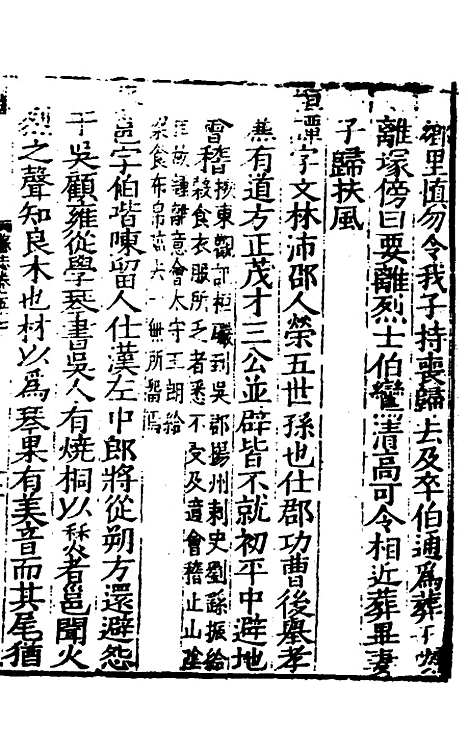 鄉里慎勿令我子持喪歸去及卒伯通爲葬于要
離塚傍曰要離烈士伯鸞清高可令相近葬畢妻
子歸扶風
桓曄字文林沛郡人榮五世孫也仕郡功曹後舉孝
廉有道方正茂才三公並辟皆不就初平中避地
會稽按東觀記桓礹到吳郡揚州刺史劉繇振給
穀食衣服所乏者悉不受及適會稽止山陰
故鍾離意舍太守王朗給
粮食布帛一無所留焉
邕字伯喈陳留人仕漢左中郎將從朔方還避怨
于吳顧雍從學琴書吳人有燒桐以炊者邕聞火
烈之聲知良木也材以爲琴果有美音而其尾猶